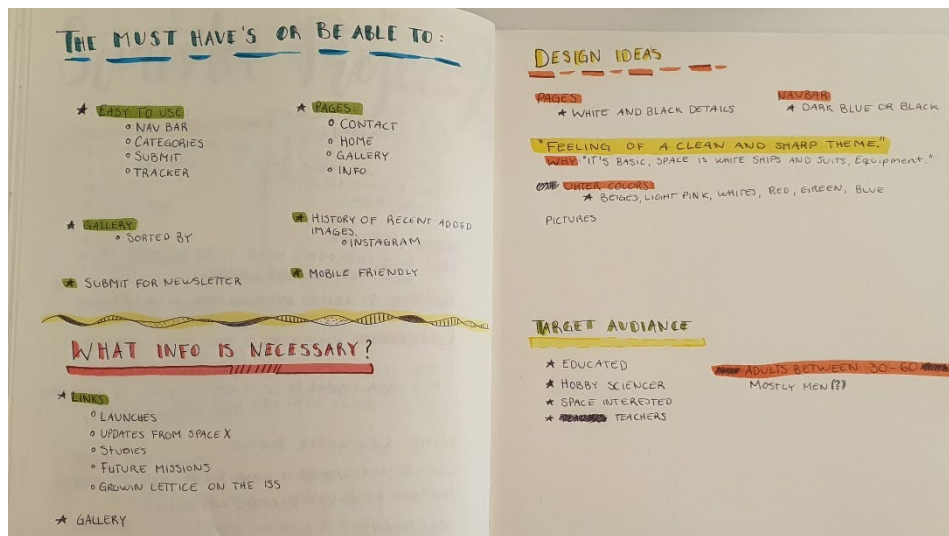 THE MUST HAVE'S OR BE ABLE TO:
★ EASY TO USE
o NAV BAR
o CATEGORIES
o SUBMIT
o TRACKER
★ PAGES:
o CONTACT
o HOME
o GALLERY
o INFO
★ GALLERY
o SORTED BY
★ HISTORY OF RECENT ADDED
IMAGES,
o INSTAGRAM
★ SUBMIT FOR NEWSLETTER
★ MOBILE FRIENDLY
WHAT INFO IS NECESSARY?
★ LINKS
o LAUNCHES
o UPDATES FROM SPACE X
o STUDIES
o FUTURE MISSIONS
o GROWIN LETTICE ON THE ISS
★ GALLERY
DESIGN IDEAS
PAGES
★ WHITE AND BLACK DETAILS
NAVBAR
★ DARK BLUE OR BLACK
"FEELING OF A CLEAN AND SHARP THEME."
WHY: "IT'S BASIC, SPACE IS WHITE SHIPS AND SUITS, EQUIPMENT."
OTHER COLORS
★ BEIGES, LIGHT PINK, WHITES, RED, GREEN, BLUE
PICTURES
TARGET AUDIANCE
★ EDUCATED
★ HOBBY SCIENCER
★ SPACE INTERESTED
★ TEACHERS
ADULTS BETWEEN 30-60
MOSTLY MEN(?)